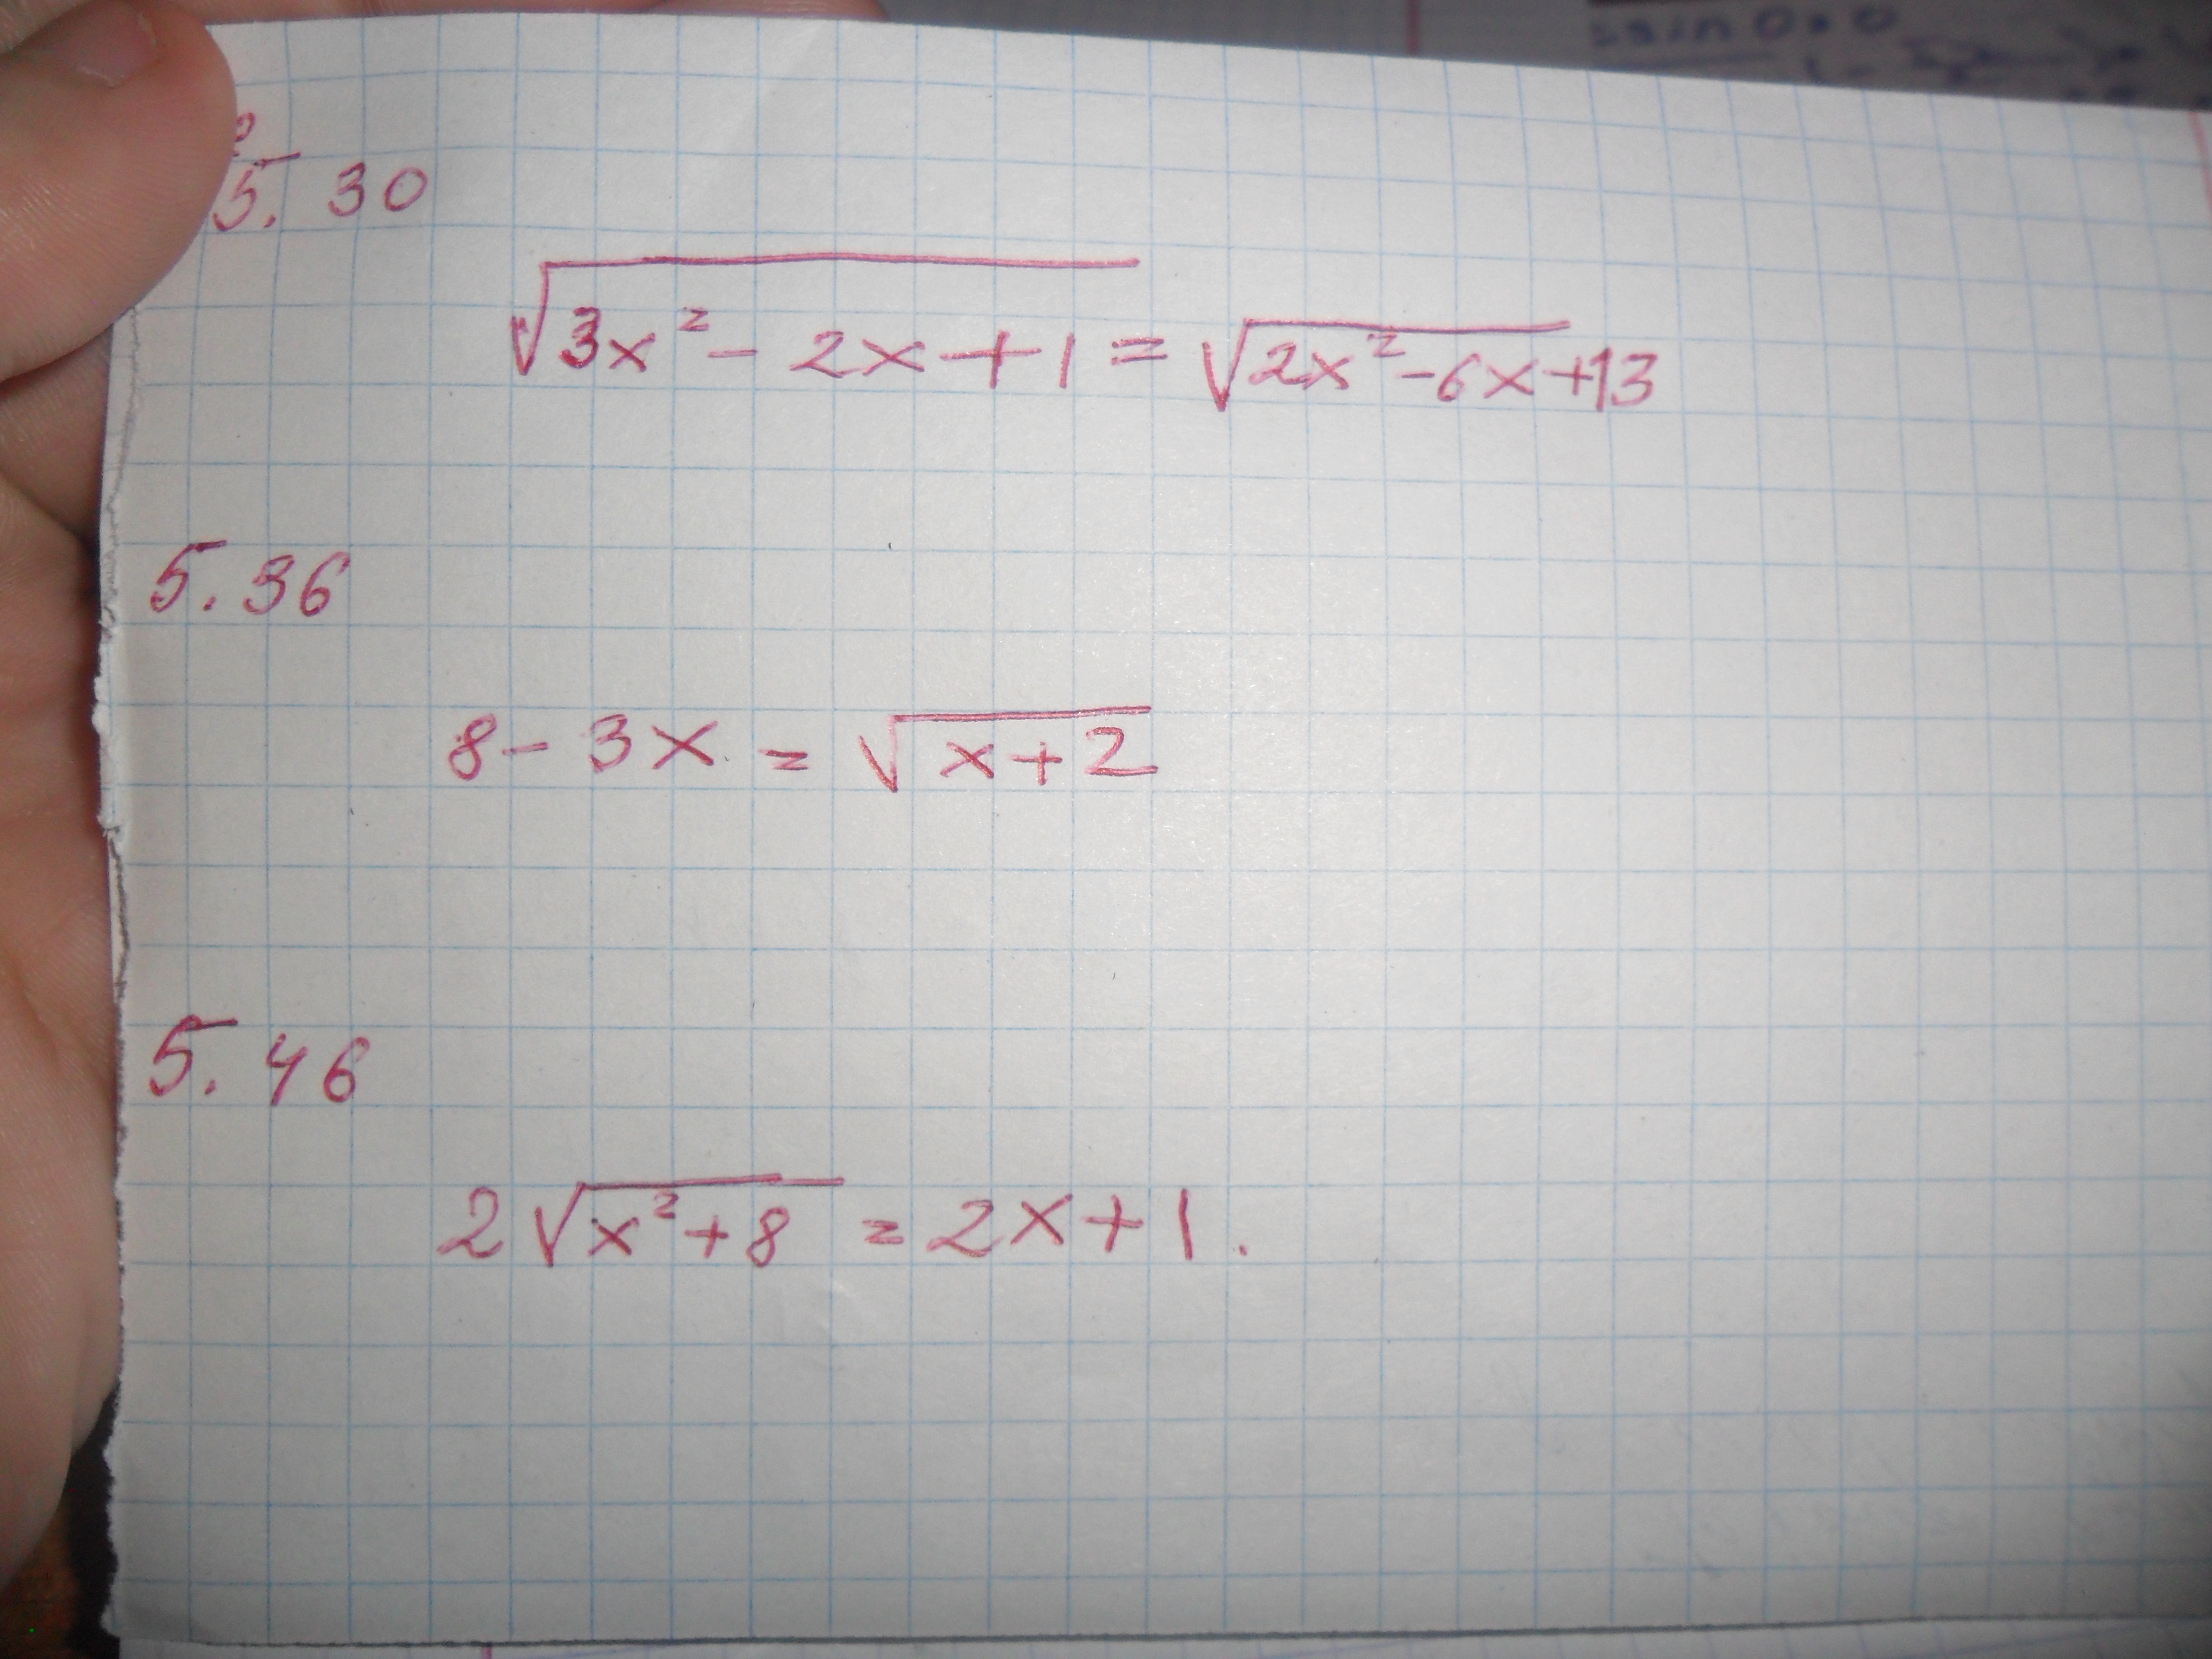 5. 30
√3x² - 2x + 1 = √2x² - 6x + 13
5. 36
8 - 3x = √x + 2
5. 46
2√x² + 8 = 2x + 1.